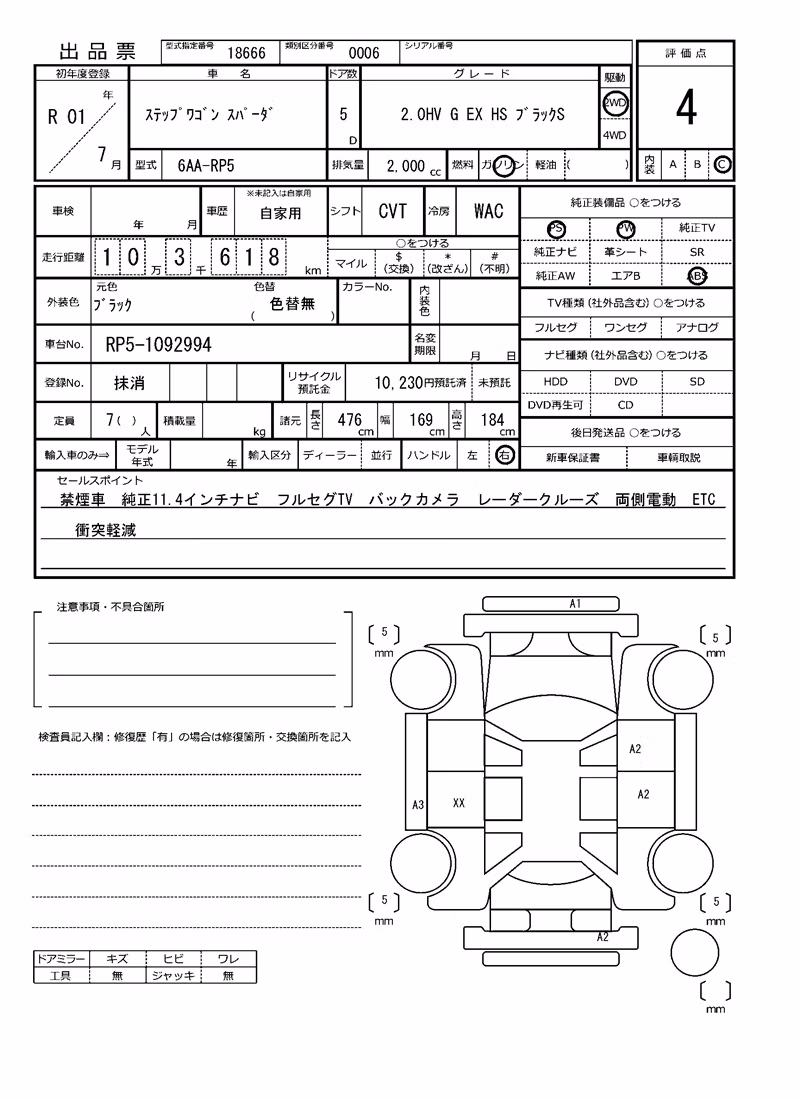 出品票 型式指定番号 18666 類別区分番号 0006 シリアル番号
評価点
初年度登録 車名 ドア数 グレード 駆動
R 01 年 7 月
ｽﾃｯﾌﾟﾜｺﾞﾝ ｽﾊﾟｰﾀﾞ 5 D 2.0HV G EX HS ﾌﾞﾗｯｸS 2WD 4WD
4
型式 6AA-RP5 排気量 2,000 cc 燃料 ガソリン 軽油 ( ) 内装 A B C
車検 年 月 車歴 ※未記入は自家用 自家用 シフト CVT 冷房 WAC
純正装備品 ○をつける
PS PW 純正TV
純正ナビ 革シート SR
純正AW エアB ABS
走行距離 10万3千618 km ○をつける
マイル $(交換) *(改ざん) #(不明)
外装色 元色 ﾌﾞﾗｯｸ 色替 ( 色替無 ) カラーNo. 内装色
TV種類(社外品含む)○をつける
フルセグ ワンセグ アナログ
車台No. RP5-1092994 名変期限 月 日
ナビ種類(社外品含む)○をつける
HDD DVD SD
DVD再生可 CD
登録No. 抹消 リサイクル預託金 10,230円預託済 未預託
定員 7( )人 積載量 kg 諸元 長さ 476 cm 幅 169 cm 高さ 184 cm
後日発送品 ○をつける
新車保証書 車輌取説
輸入車のみ⇒ モデル年式 年 輸入区分 ディーラー 並行 ハンドル 左 右
セールスポイント
禁煙車 純正11.4インチナビ フルセグTV バックカメラ レーダークルーズ 両側電動 ETC
衝突軽減
注意事項・不具合箇所
A1
5 mm
5 mm
検査員記入欄：修復歴「有」の場合は修復箇所・交換箇所を記入
A2
A3 XX A2
5 mm
5 mm
A2
ドアミラー キズ ヒビ ワレ
工具 無 ジャッキ 無
mm